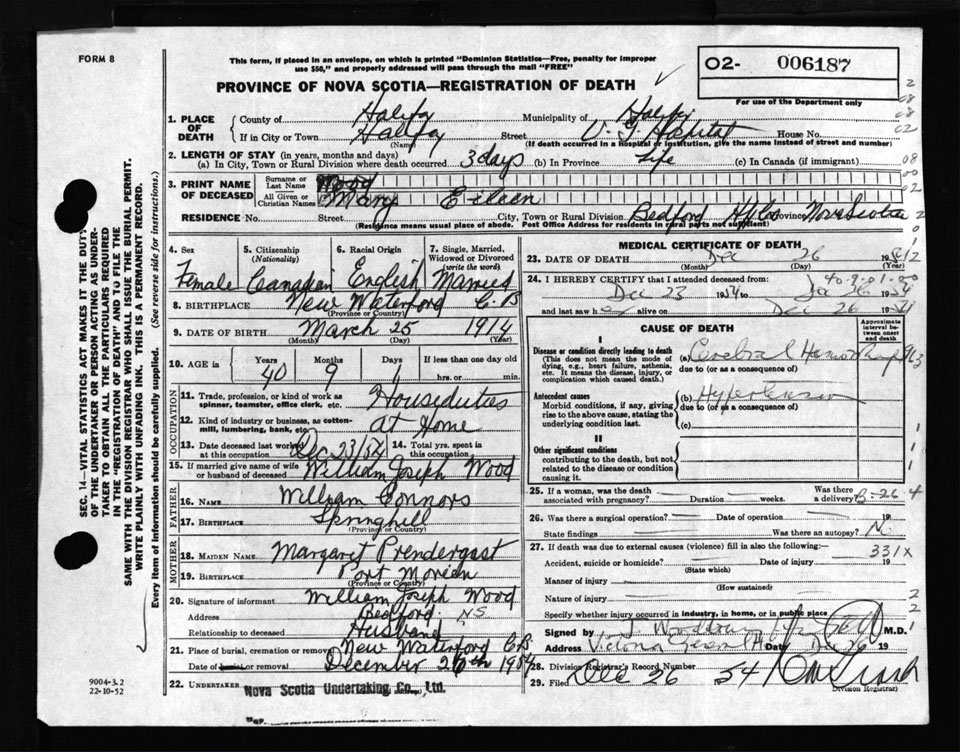 FORM 8
This form, if placed in an envelope, on which is printed "Dominion Statistics—Free, penalty for improper
use $50," and properly addressed will pass through the mail "FREE"
O2- 006187
For use of the Department only
PROVINCE OF NOVA SCOTIA—REGISTRATION OF DEATH
1. PLACE OF DEATH { County of Halifax Municipality of Halifax
If in City or Town Halifax Street V. G. Hospital House No.
(Name) (If death occurred in a hospital or institution, give the name instead of street and number)
2. LENGTH OF STAY (in years, months and days)
(a) In City, Town or Rural Division where death occurred 3 days (b) In Province Life (c) In Canada (if immigrant)
3. PRINT NAME OF DECEASED { Surname or Last Name Wood
All Given or Christian Names Mary Eileen
RESIDENCE No. Street City, Town or Rural Division Bedford Hfx Co Province Nova Scotia
(Residence means usual place of abode. Post Office Address for residents in rural parts not sufficient)
4. Sex Female
5. Citizenship (Nationality) Canadian
6. Racial Origin English
7. Single, Married, Widowed or Divorced (write the word) Married
8. BIRTHPLACE New Waterford C.B
(Province or Country)
9. DATE OF BIRTH March 25 1914
(Month) (Day) (Year)
10. AGE in { Years 40 Months 9 Days 1 If less than one day old
hrs. or min.
OCCUPATION
11. Trade, profession, or kind of work as spinner, teamster, office clerk, etc. Houseduties
12. Kind of industry or business, as cotton-mill, lumbering, bank, etc. at Home
13. Date deceased last worked at this occupation Dec 23/54 14. Total yrs. spent in this occupation
15. If married give name of wife or husband of deceased William Joseph Wood
FATHER
16. NAME William Connors
17. BIRTHPLACE Springhill
(Province or Country)
MOTHER
18. MAIDEN NAME Margaret Prendergast
19. BIRTHPLACE Port Morien
(Province or Country)
20. Signature of informant William Joseph Wood
Address Bedford N.S
Relationship to deceased Husband
21. Place of burial, cremation or removal New Waterford C.B
Date of burial or removal December 26th 1954
22. UNDERTAKER Nova Scotia Undertaking Co., Ltd.
MEDICAL CERTIFICATE OF DEATH
23. DATE OF DEATH Dec 26 1954
(Month) (Day) (Year)
24. I HEREBY CERTIFY that I attended deceased from:
Dec 23 1954 to Dec 26 1954
and last saw her alive on Dec 26 1954
CAUSE OF DEATH
Approximate interval between onset and death
I
Disease or condition directly leading to death (a) Cerebral Hemorrhage
(This does not mean the mode of dying, e.g., heart failure, asthenia, etc. It means the disease, injury, or complication which caused death.)
due to (or as a consequence of)
Antecedent causes (b) Hypertension
Morbid conditions, if any, giving rise to the above cause, stating the underlying condition last.
due to (or as a consequence of)
(c)
II
Other significant conditions contributing to the death, but not related to the disease or condition causing it.
25. If a woman, was the death associated with pregnancy? Duration weeks. Was there a delivery?
26. Was there a surgical operation? Date of operation 19
State findings Was there an autopsy? N.
27. If death was due to external causes (violence) fill in also the following:— 331X
Accident, suicide or homicide? Date of injury 19
(State which)
Manner of injury
(How sustained)
Nature of injury
Specify whether injury occurred in industry, in home, or in public place
Signed by M.D.
Address Victoria Date Dec 26 19
28. Division Registrar's Record Number
29. Filed Dec 26 1954
Division Registrar
SEC. 14—VITAL STATISTICS ACT MAKES IT THE DUTY
OF THE UNDERTAKER OR PERSON ACTING AS UNDER-
TAKER TO OBTAIN ALL THE PARTICULARS REQUIRED
IN THE "REGISTRATION OF DEATH" AND TO FILE THE
SAME WITH THE DIVISION REGISTRAR WHO SHALL ISSUE THE BURIAL PERMIT.
WRITE PLAINLY WITH UNFADING INK—THIS IS A PERMANENT RECORD.
Every item of information should be carefully supplied. (See reverse side for instructions.)
9004-3.2
22-10-52